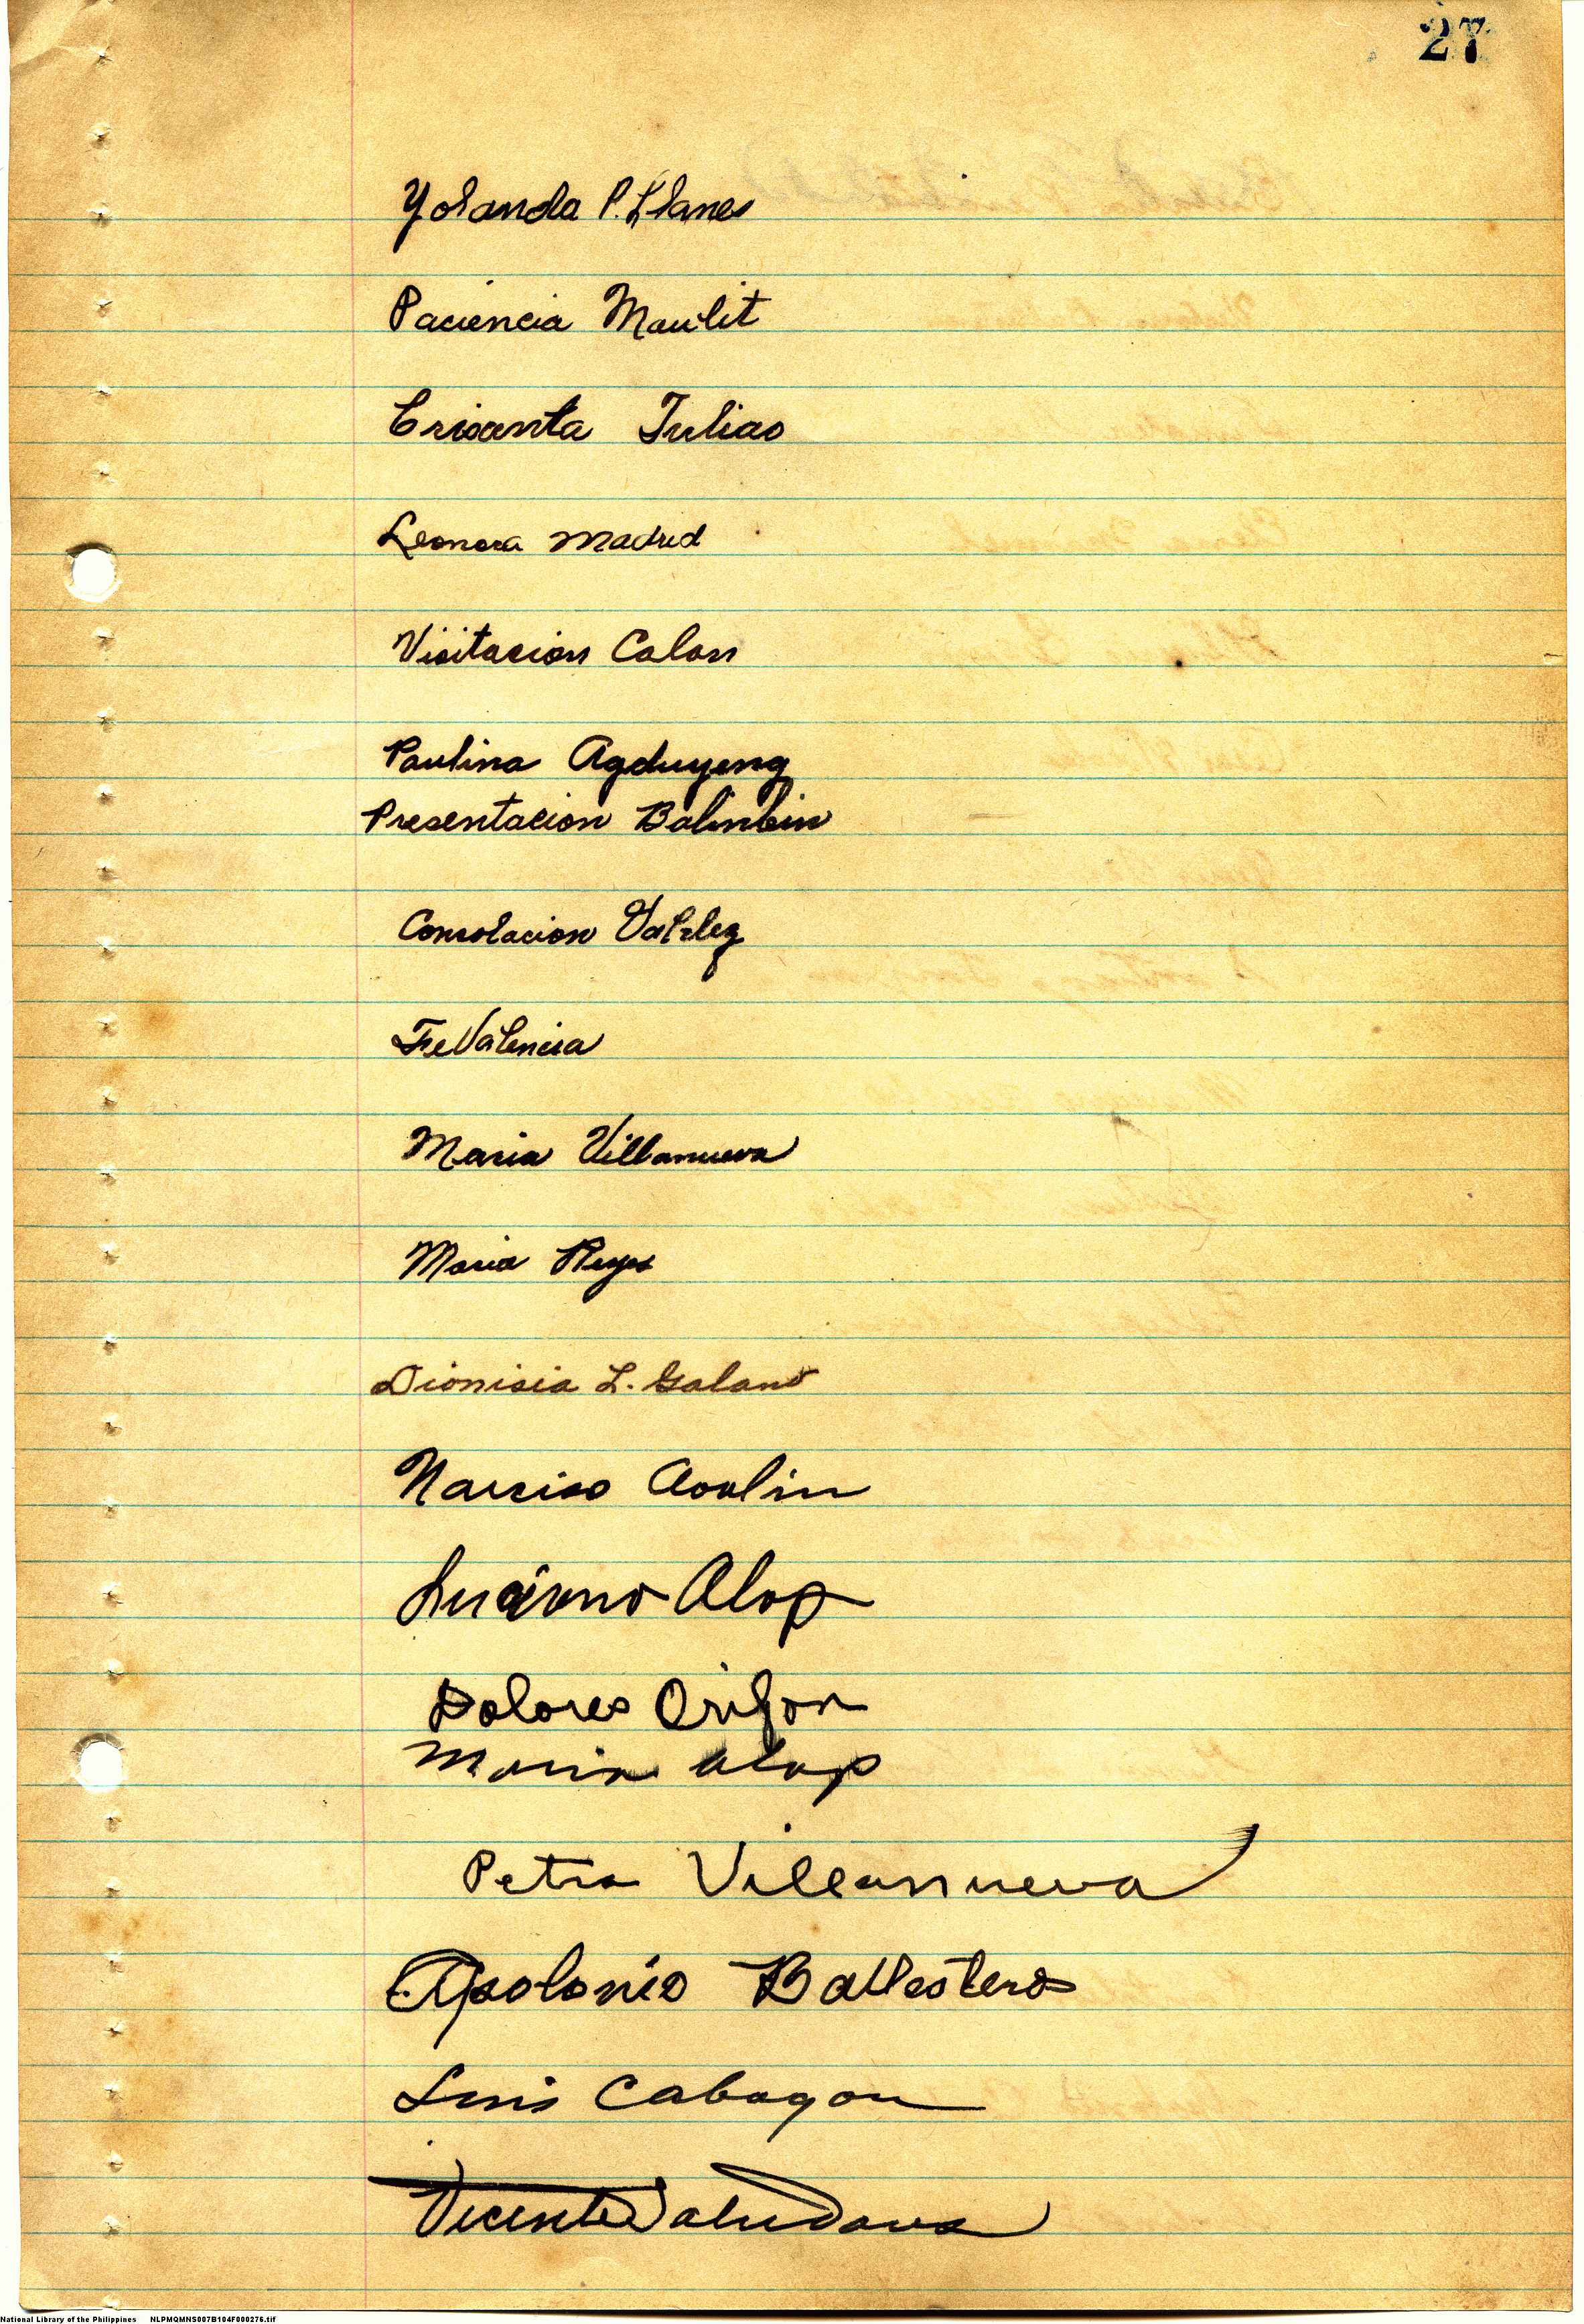 27
Yolanda P. Llanes
Paciencia Maulit
Crisanta Juliao
Leonora Madrid
Visitacion Calan
Paulina Agduyeng
Presentacion Balmbin
Consolacion Valdez
Fe Valencia
Maria Villanueva
Maria Reyes
Dionisia L. Galano
Narciso
Luciano Alop
Dolores
Maria Alop
Petra Villanueva
Apolonio Ballesteros
Luis Cabagon
Vicente
National Library of the Philippines NLPMQMNS007B104F000276.tif